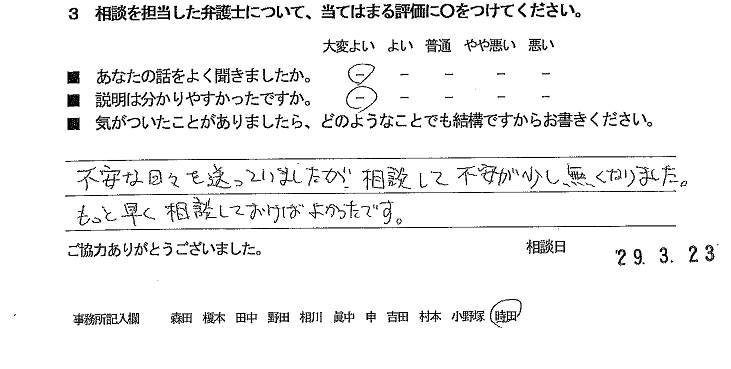 3 相談を担当した弁護士について、当てはまる評価に○をつけてください。
大変よい よい 普通 やや悪い 悪い
■ あなたの話をよく聞きましたか。 − − − − −
■ 説明は分かりやすかったですか。 − − − − −
■ 気がついたことがありましたら、どのようなことでも結構ですからお書きください。
不安な日々を送っていましたが、相談して不安が少し無くなりました。
もっと早く相談しておけばよかったです。
ご協力ありがとうございました。 相談日 '29. 3. 23
事務所記入欄 森田 榎本 田中 野田 相川 眞中 申 吉田 村本 小野塚 時田